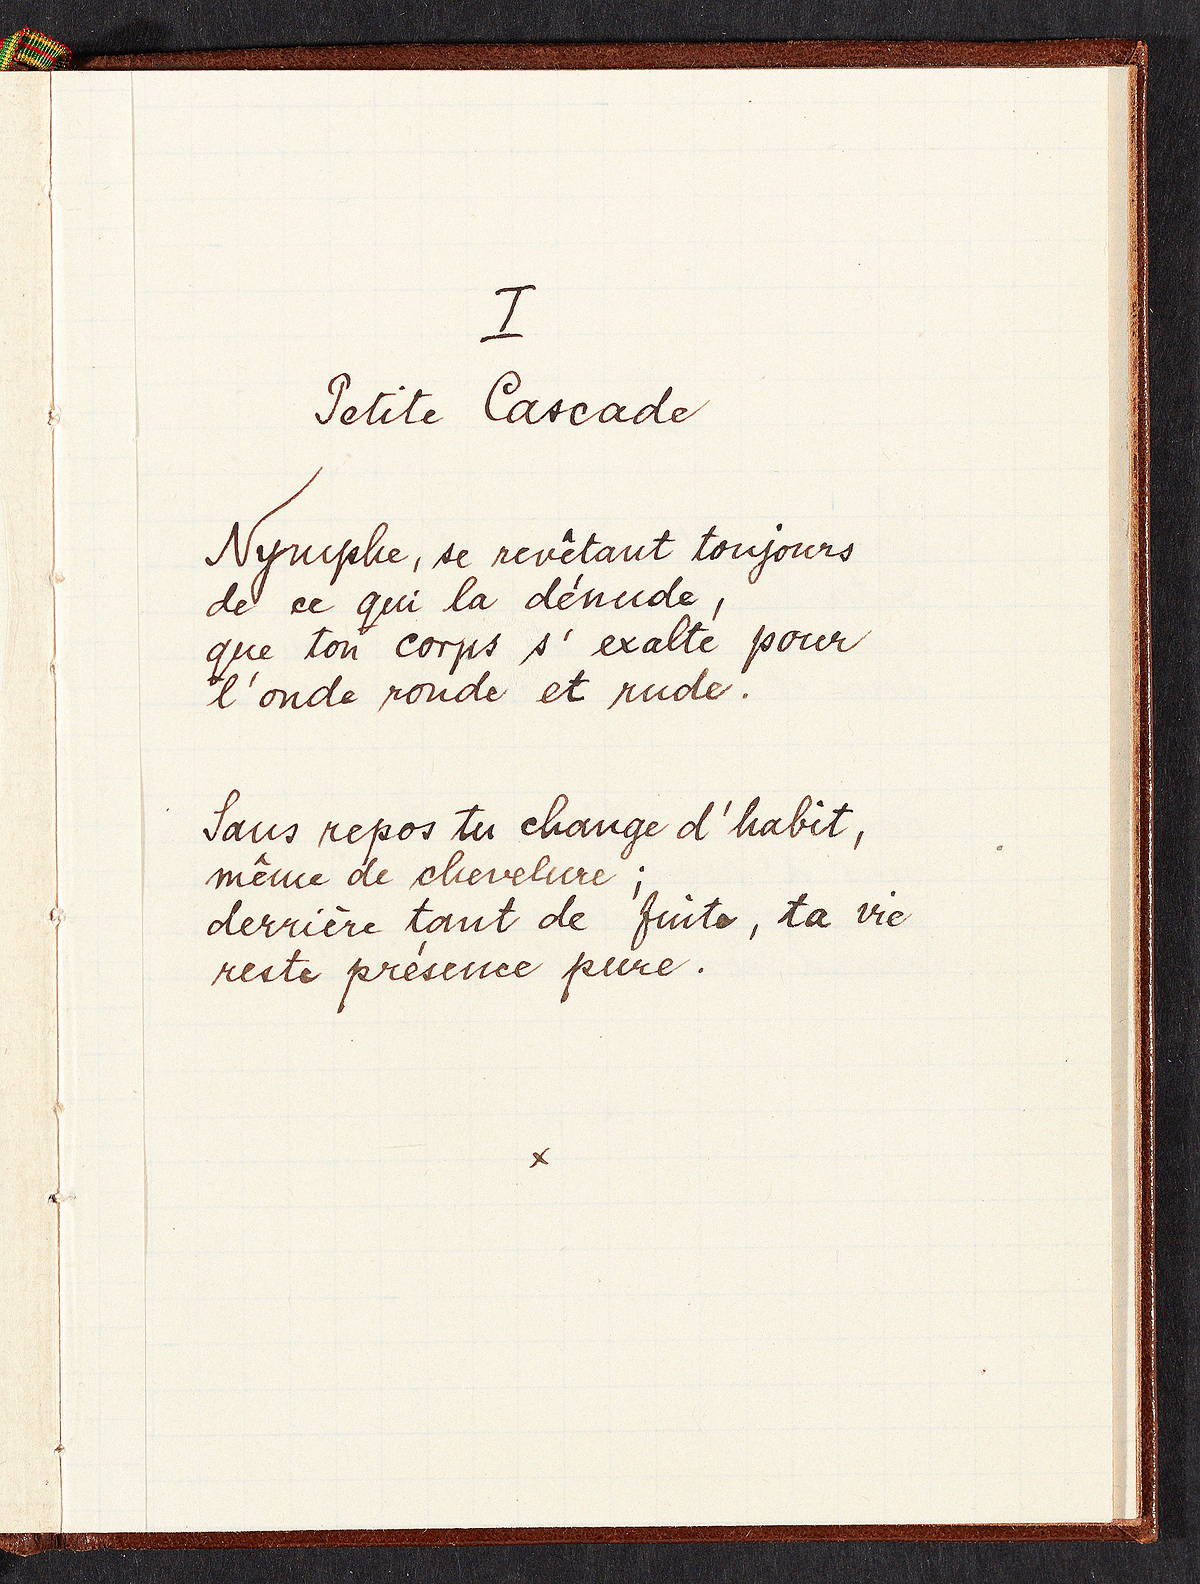 I
Petite Cascade
Nymphe, se revêtant toujours
de ce qui la dénude,
que ton corps s'exalte pour
l'onde ronde et rude.
Sans repos tu change d'habit,
même de chevelure ;
derrière tant de fuite, ta vie
reste présence pure.
x